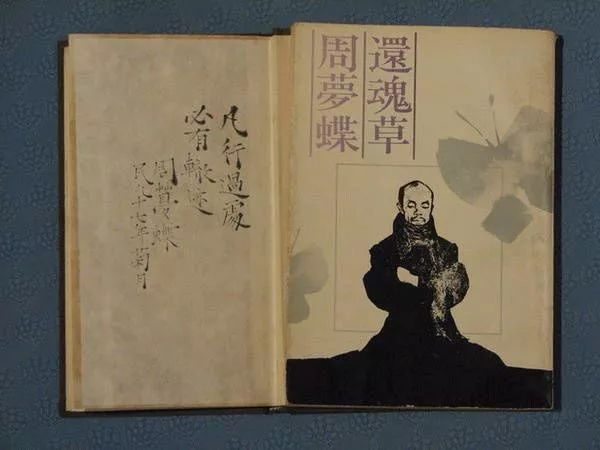 還魂草
周夢蝶
凡行過處
必有轍迹
周夢蝶
民九十七年菊月